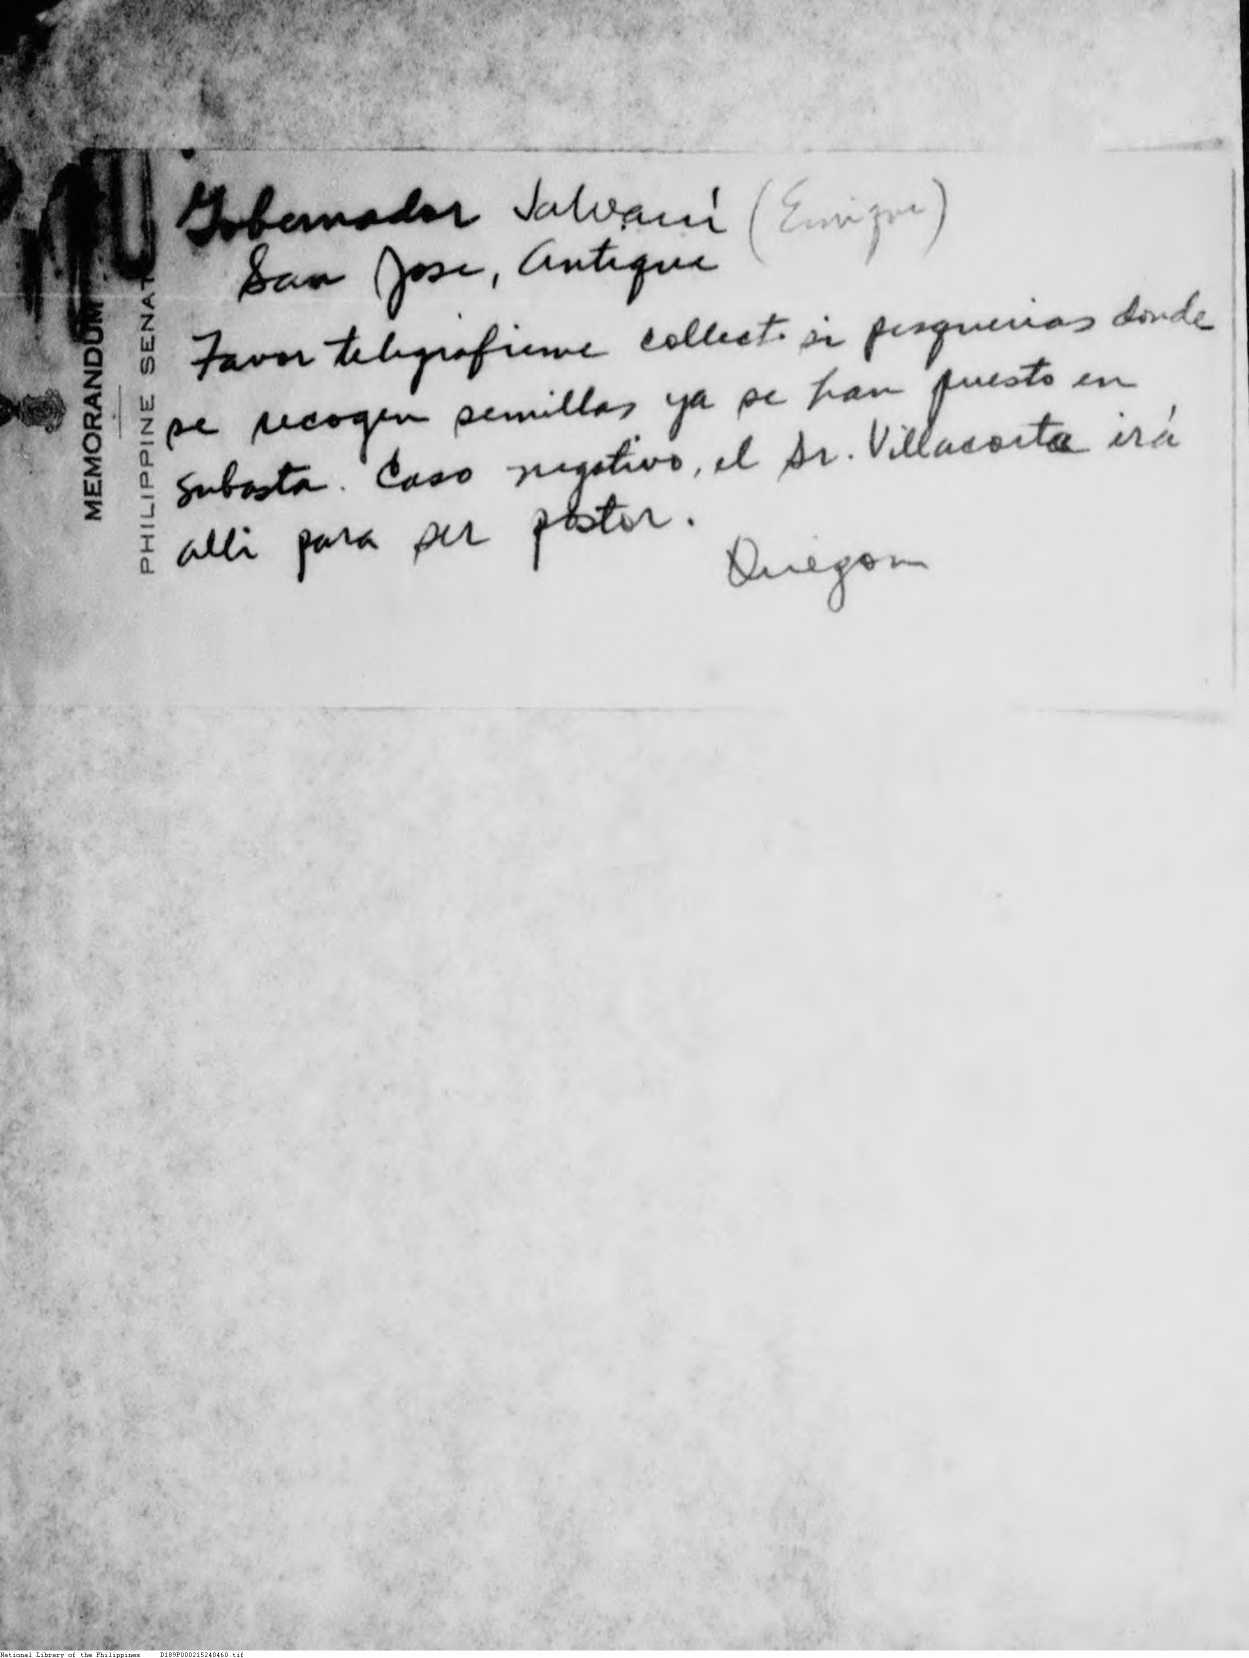 MEMORANDUM
PHILIPPINE SENATE
Gobernador Salvaní (Enrique)
San Jose, Antique
Favor telegrafieme collect si pesquerias donde
se recogen semillas ya se han puesto en
subasta. Caso negativo, el Sr. Villacorta irá
alli para ser postor.
Quezon
National Library of the Philippines D189P000215240460.tif